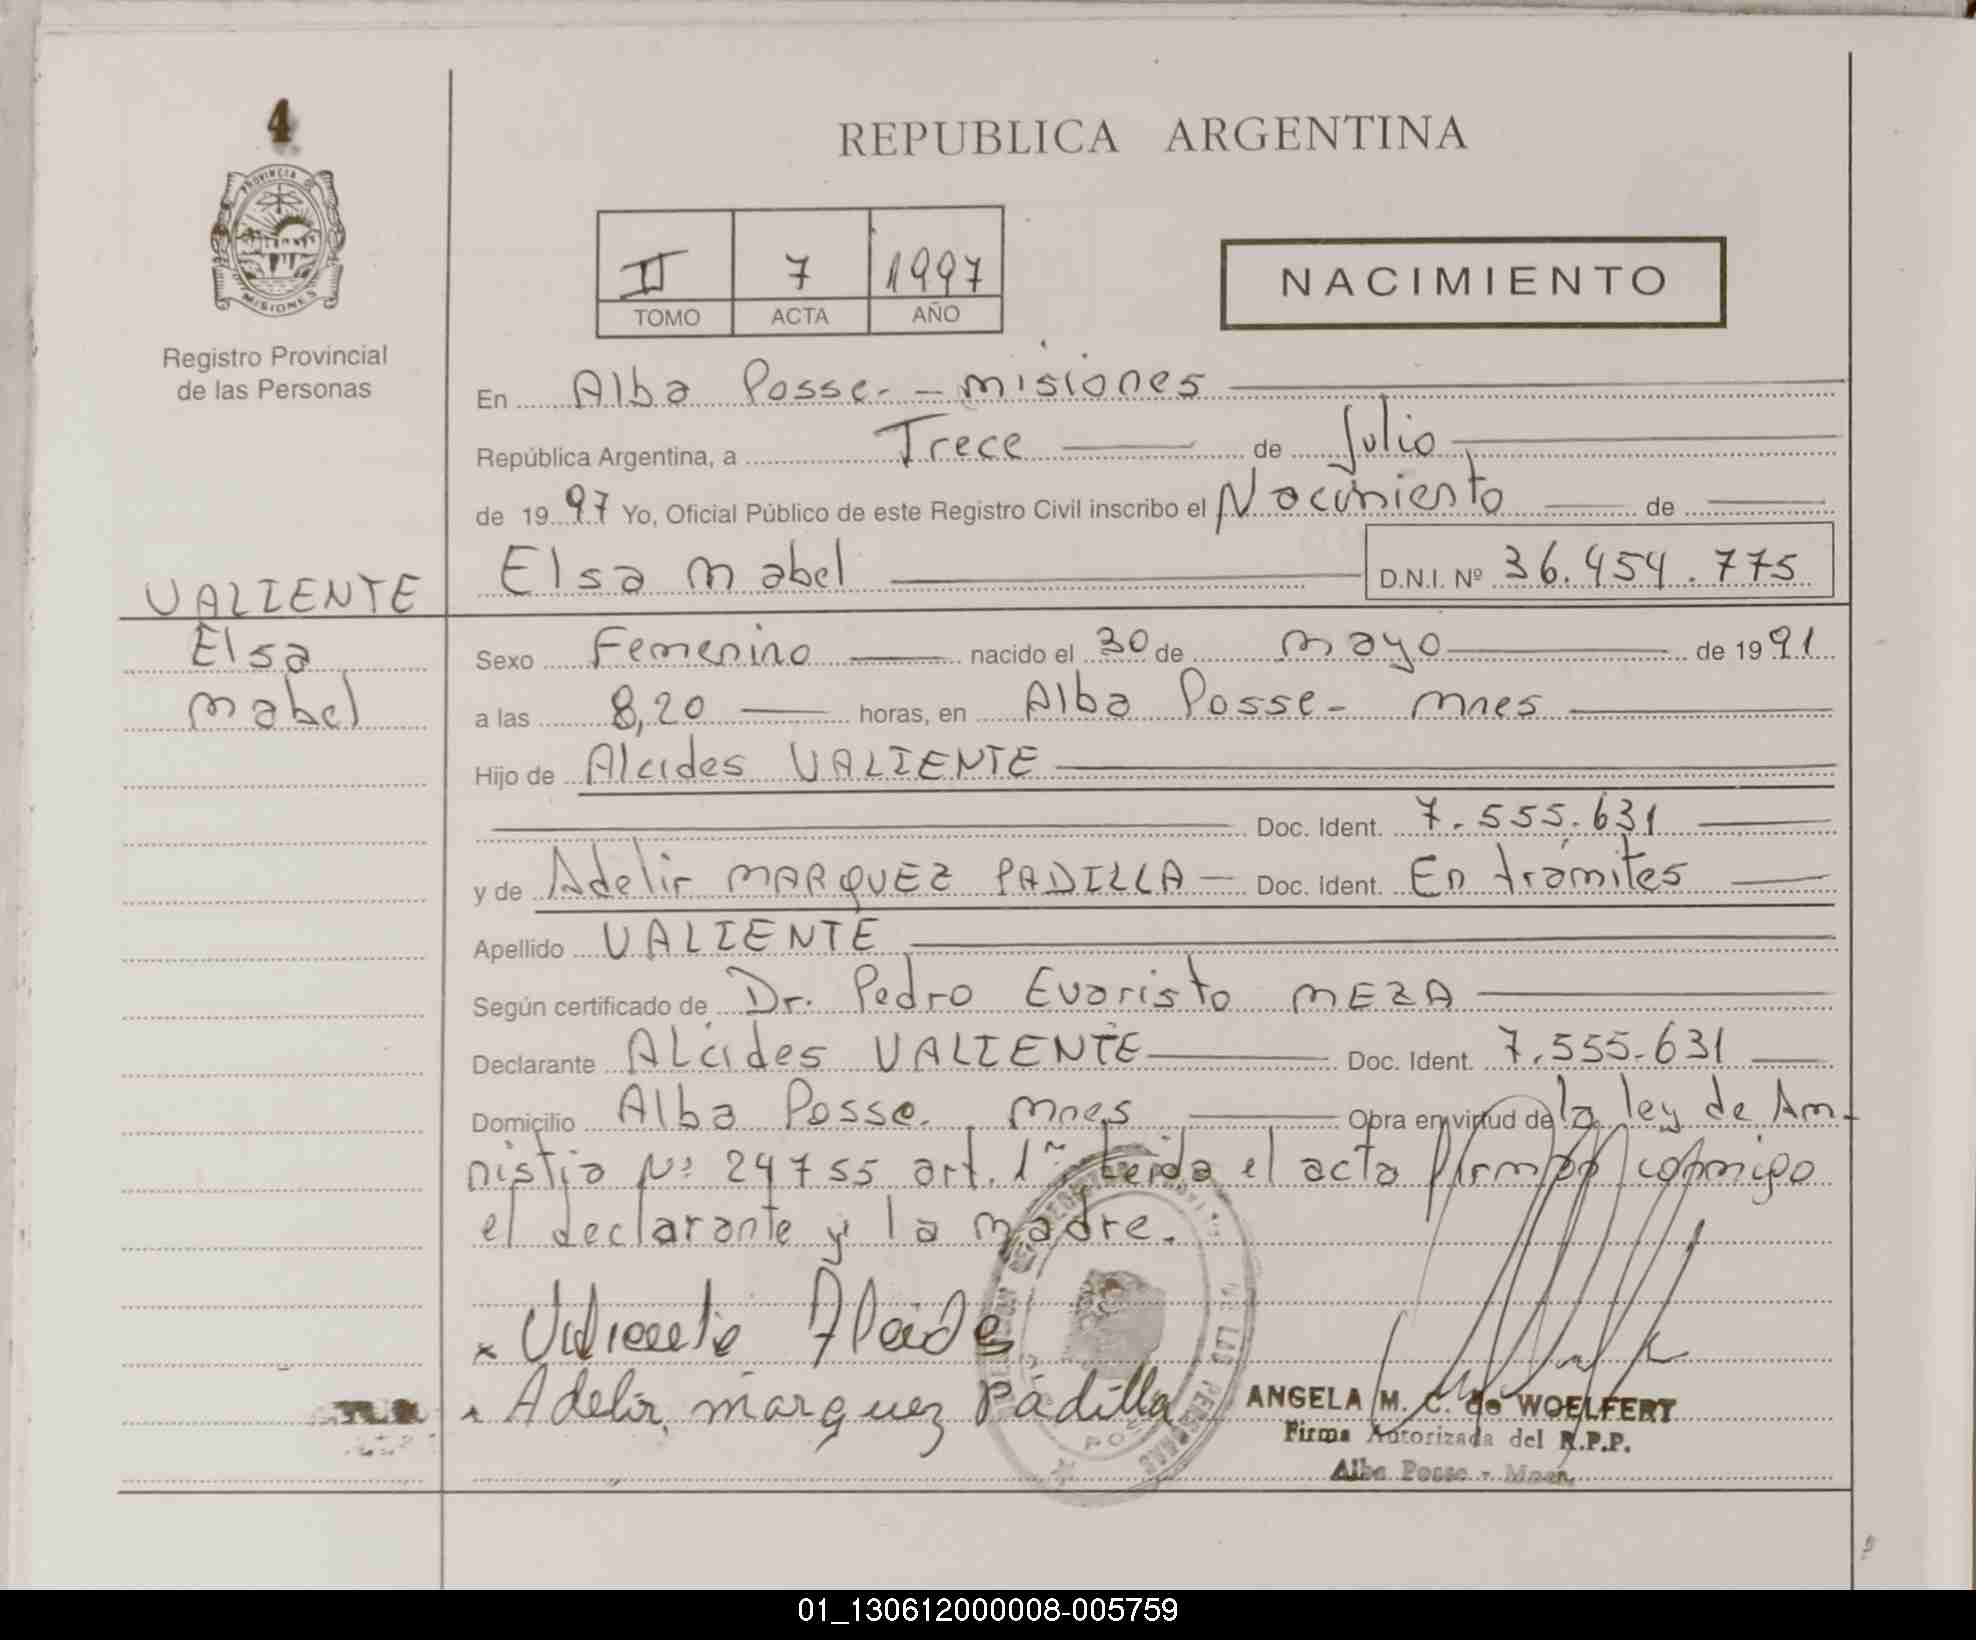 4
PROVINCIA DE
MISIONES
Registro Provincial
de las Personas
REPUBLICA ARGENTINA
II 7 1997
TOMO ACTA AÑO
NACIMIENTO
En Alba Posse.- - misiones
República Argentina, a Trece de Julio
de 1997 Yo, Oficial Público de este Registro Civil inscribo el Nacimiento de
Elsa mabel D.N.I. Nº 36.454.775
VALIENTE
Elsa
mabel
Sexo Femenino nacido el 30 de mayo de 1991
a las 8,20 horas, en Alba Posse- mnes
Hijo de Alcides VALIENTE
Doc. Ident. 7.555.631
y de Adelir MARQUEZ PADILLA - Doc. Ident. En trámites
Apellido VALIENTE
Según certificado de Dr. Pedro Evaristo MEZA
Declarante ALcides VALIENTE Doc. Ident. 7.555.631
Domicilio Alba Posse. mnes Obra en virtud de la ley de Am-
nistia Nº 24755 art. 1º Leida el acta firman conmigo
el declarante y la madre.
x Valiente Alcides
x Adelir marquez Padilla
ANGELA M. C. de WOELFERT
Firma Autorizada del R.P.P.
Alba Posse - Mnes.
01_130612000008-005759